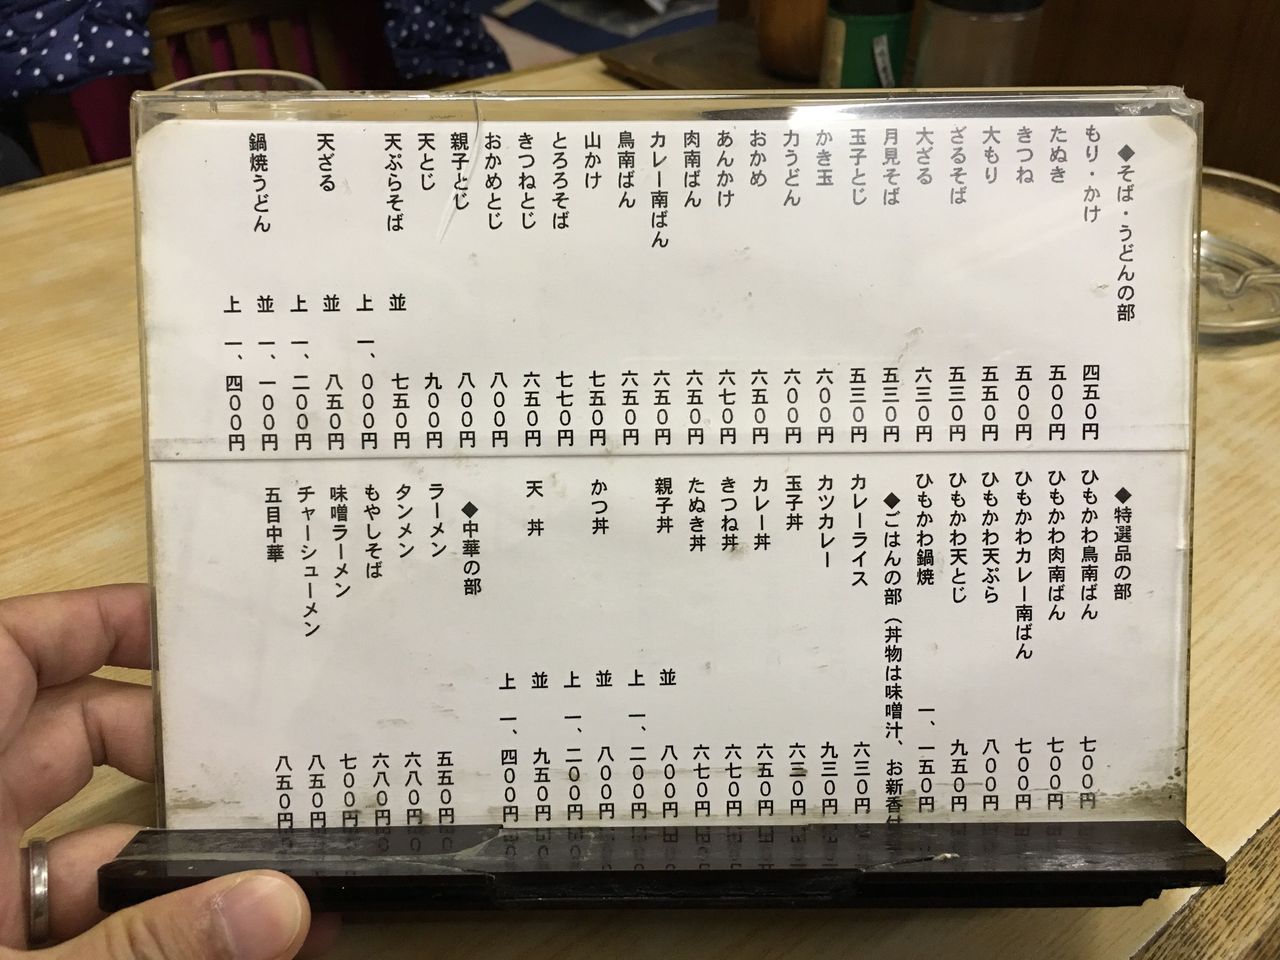 ◆そば・うどんの部
もり・かけ 四五〇円
たぬき 五〇〇円
きつね 五〇〇円
大もり 五五〇円
ざるそば 五三〇円
大ざる 六三〇円
月見そば 五三〇円
玉子とじ 五三〇円
かき玉 六〇〇円
力うどん 六〇〇円
おかめ 六五〇円
あんかけ 六七〇円
肉南ばん 六五〇円
カレー南ばん 六五〇円
鳥南ばん 六五〇円
山かけ 七五〇円
とろろそば 七七〇円
きつねとじ 六五〇円
おかめとじ 八〇〇円
親子とじ 八〇〇円
天とじ 九〇〇円
天ぷらそば 並 七五〇円
上 一、〇〇〇円
天ざる 並 八五〇円
上 一、二〇〇円
鍋焼うどん 並 一、一〇〇円
上 一、四〇〇円
◆特選品の部
ひもかわ鳥南ばん 七〇〇円
ひもかわ肉南ばん 七〇〇円
ひもかわカレー南ばん 七〇〇円
ひもかわ天ぷら 八〇〇円
ひもかわ天とじ 九五〇円
ひもかわ鍋焼 一、一五〇円
◆ごはんの部（丼物は味噌汁、お新香付
カレーライス 六三〇円
カツカレー 九三〇円
玉子丼 六三〇円
カレー丼 六五〇円
きつね丼 六七〇円
たぬき丼 六七〇円
親子丼 並 八〇〇円
上 一、二〇〇円
かつ丼 並 八〇〇円
上 一、二〇〇円
天丼 並 九五〇円
上 一、四〇〇円
◆中華の部
ラーメン 五五〇円
タンメン 六八〇円
もやしそば 六八〇円
味噌ラーメン 七〇〇円
チャーシューメン 八五〇円
五目中華 八五〇円